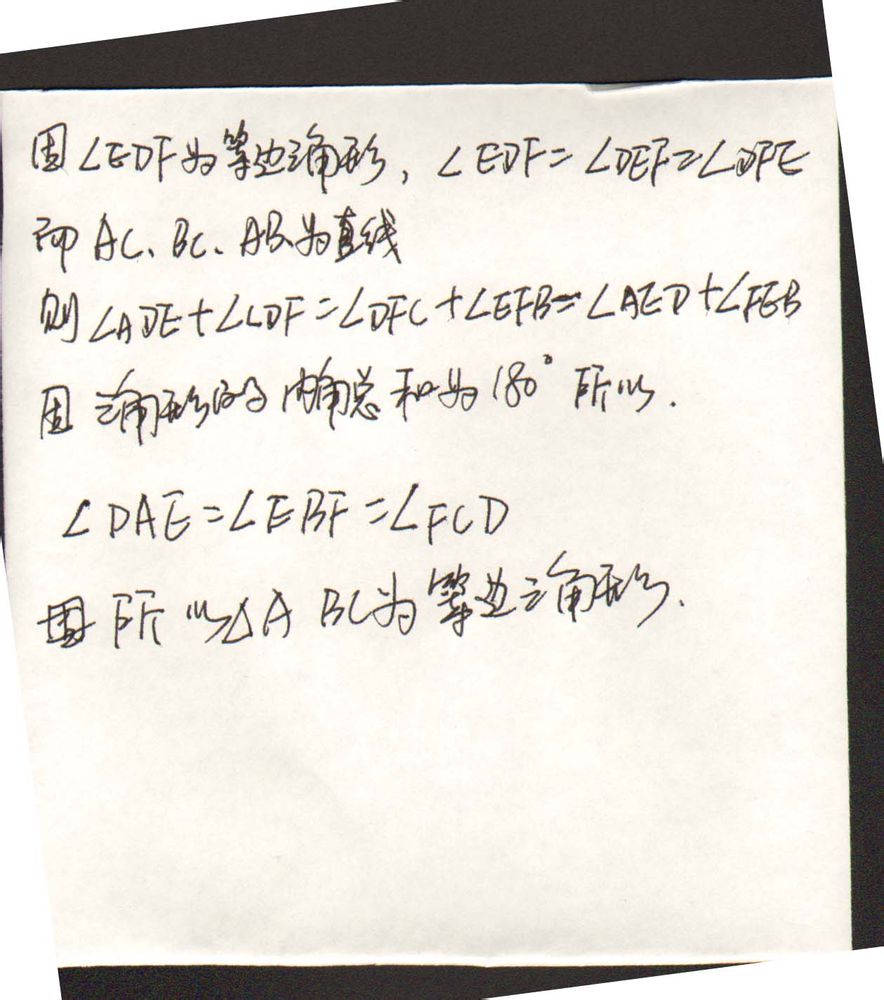 因∠EDF为等边三角形，∠EDF=∠DEF=∠DFE
而AC、BC、AB为直线
则∠ADE+∠CDF=∠DFC+∠EFB=∠AED+∠FEB
因三角形的内角总和为180°所以.
∠DAE=∠EBF=∠FCD
所以△ABC为等边三角形.